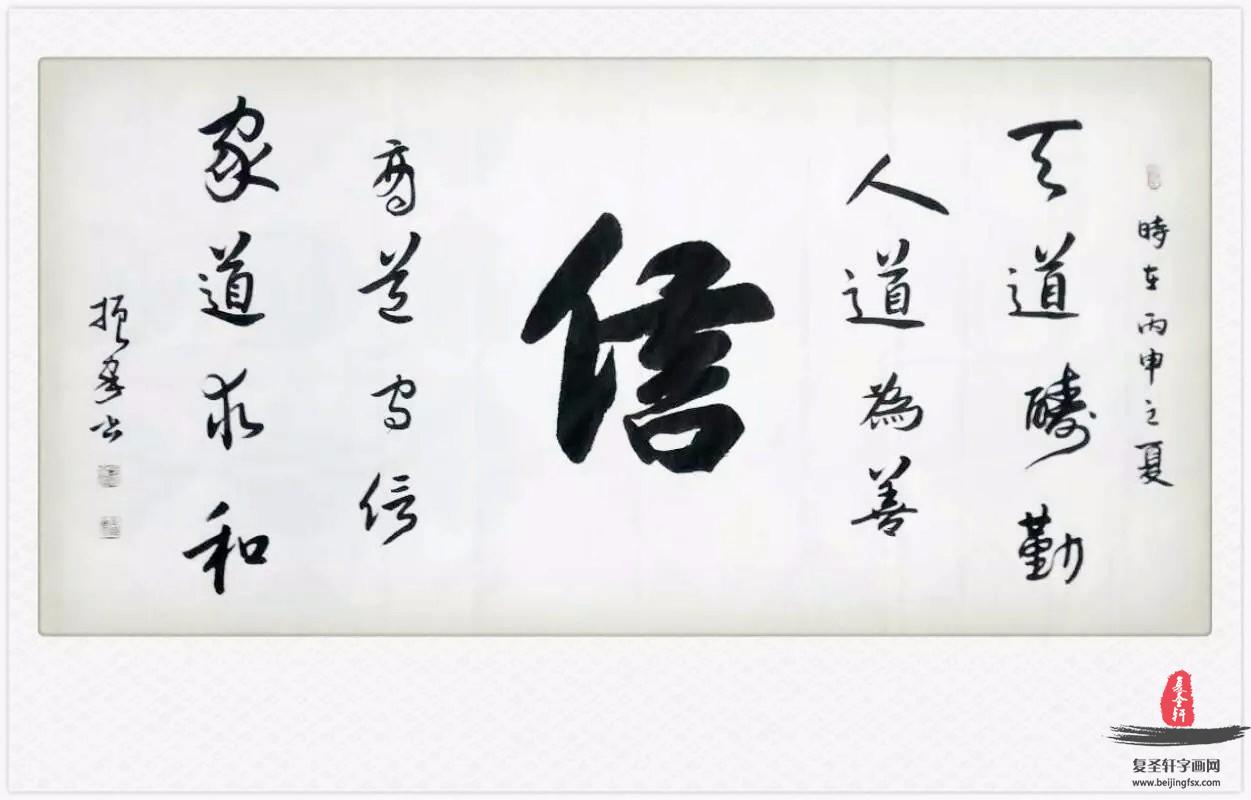 時在丙申之夏
天道醻勤
人道為善
信
商道守信
家道求和
振
复圣轩
复圣轩字画网
www.beijingfsx.com